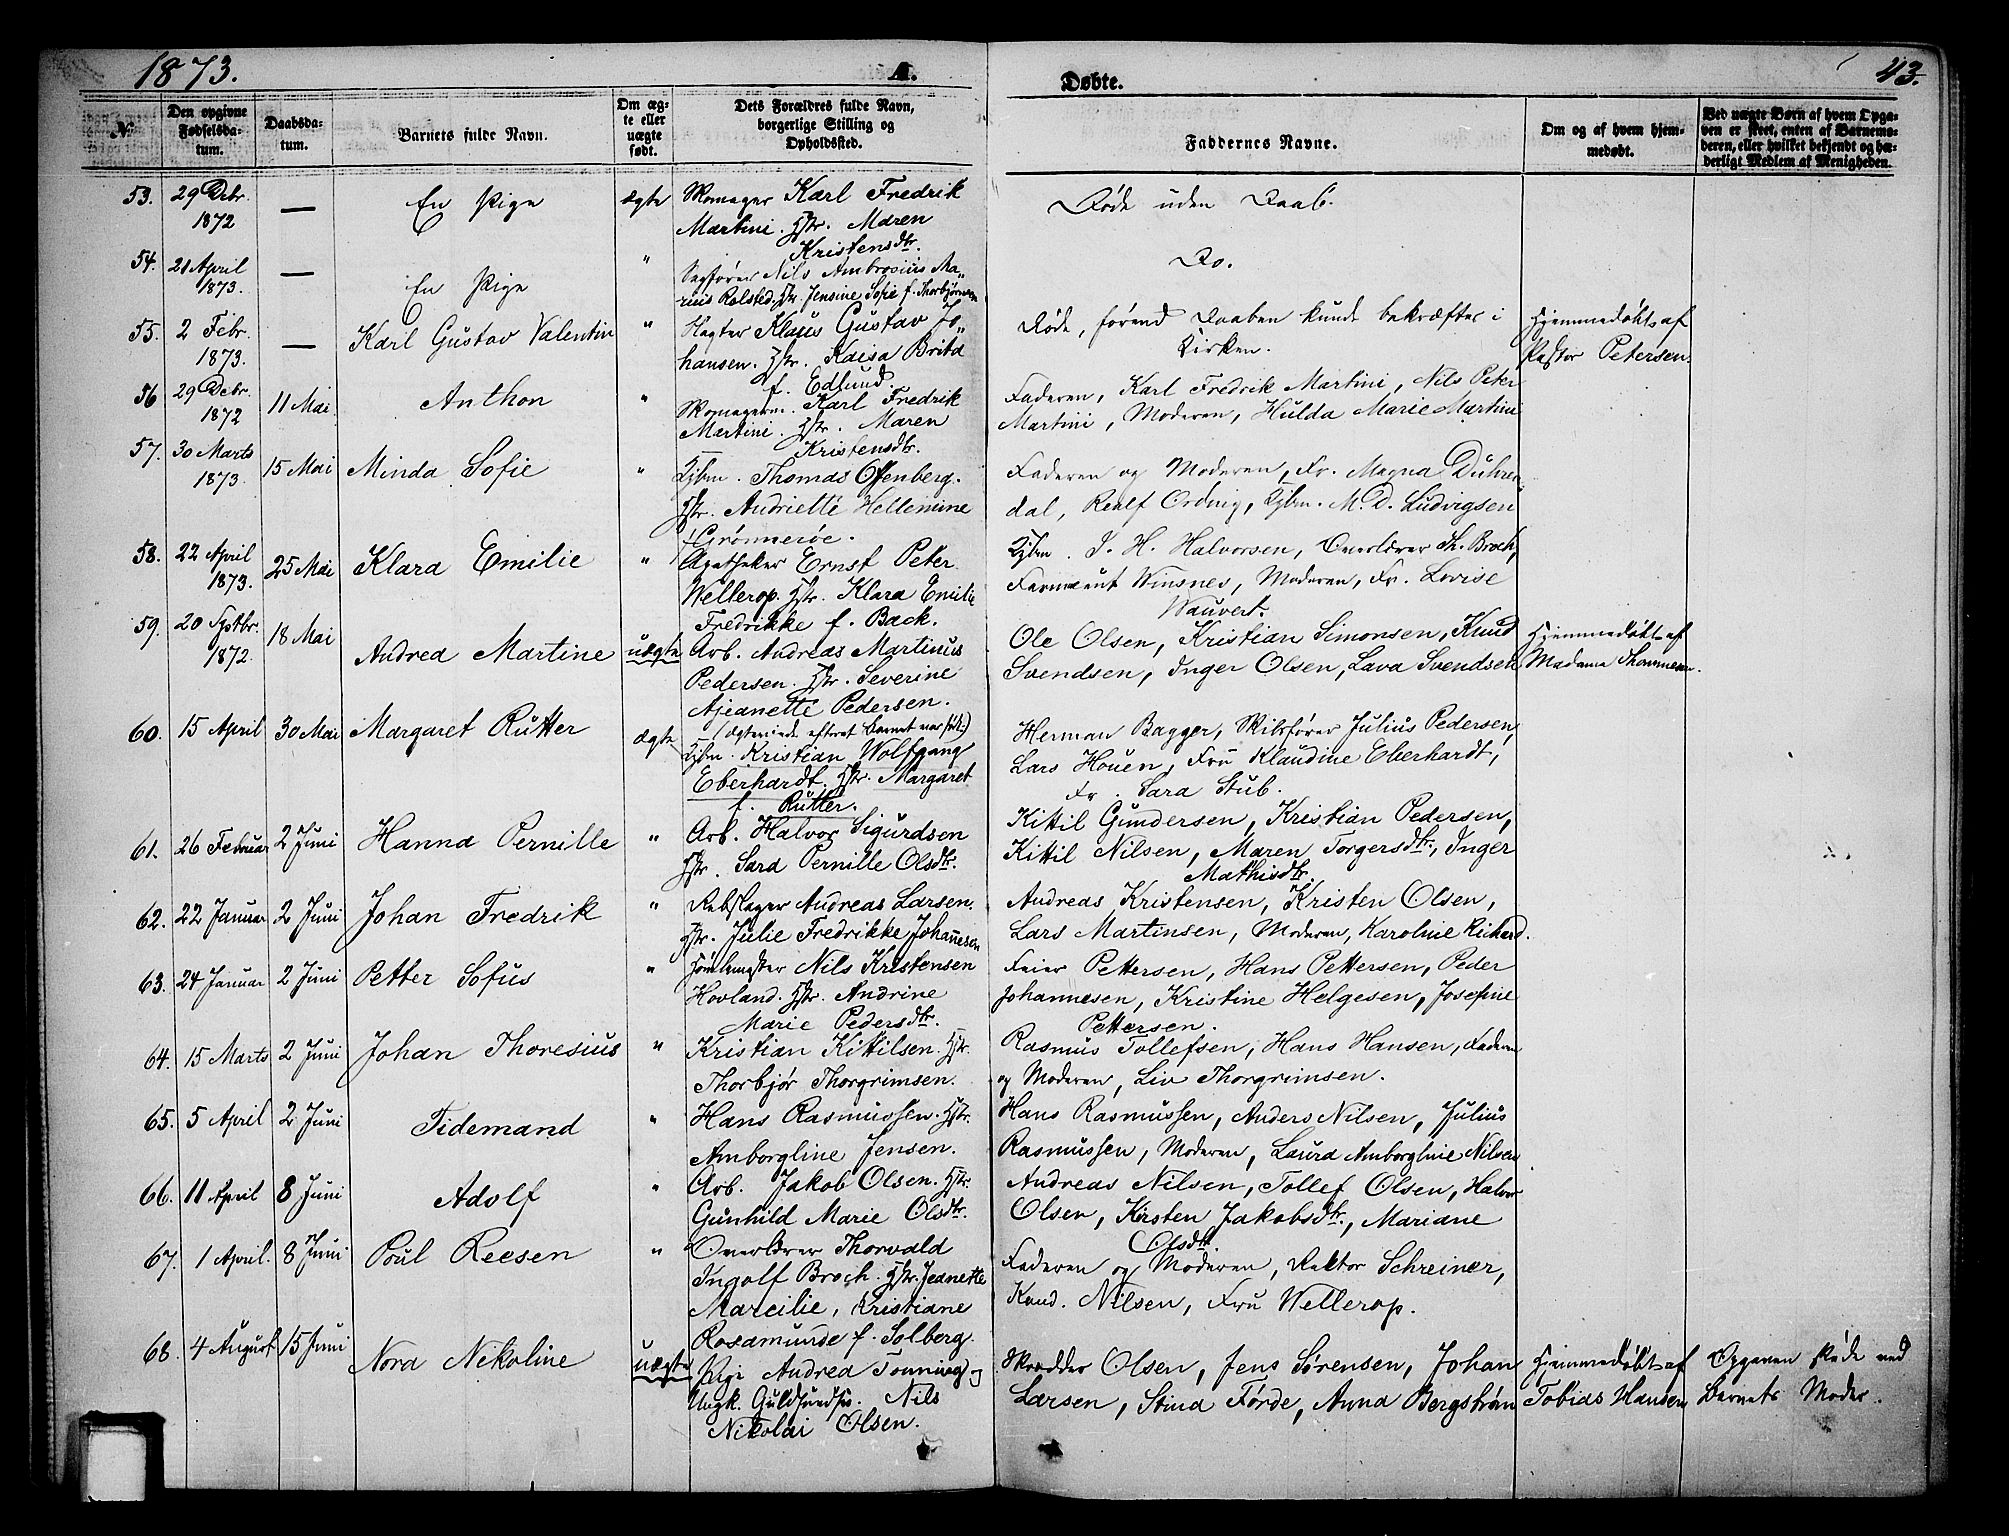 1873.
A.
Døbte.
43.
No
Den opgivne Fødselsdatum.
Daabsdatum.
Barnets fulde Navn.
Om ægte eller uægte født.
Dets Forældres fulde Navn, borgerlige Stilling og Opholdssted.
Faddernes Navne.
Om og af hvem hjemmedøbt.
Ved uægte Børn af hvem Opgaven er skeet, enten af Barnemoderen, eller hvilket bekjendt og hæderligt Medlem af Menigheden.
53. 29 Debr. 1872 — En Pige ægte Skomager Karl Fredrik
Martini. Hstr. Maren
Kristensdtr.
Døde uden Daab.
54. 21 April 1873. — En Pige " Sagfører Nils Ambrosius Ma-
rius Rolsted. Hstr. Jensine Sofie f. Thorbjørnsen
Do.
55. 2 Febr. 1873. — Karl Gustav Valentin " Klaus Gustav Jo-
hansen. Hstr. Kaisa Brita
f. Edlund.
Døde, førend Daaben kunde bekræftes i
Kirken.
Hjemmedøbt af
Pastor Petersen.
56 29 Debr. 1872 11 Mai. Anthon " Skomagerm. Karl Fredrik
Martini. Hstr. Maren
Kristensdtr.
Faderen, Karl Fredrik Martini, Nils Peter
Martini, Moderen, Hulda Marie Martini
57. 30 Marts 1873. 15 Mai Minda Sofie " Kjbm. Thomas Offenberg.
Hstr. Andriette Hellemine
f Grønnerøe.
Faderen og Moderen, Fr. Magna Dühren
dal, Realf Ording, Kjbm. M. D. Ludvigsen
58. 22 April 1873. 25 Mai Klara Emilie " Apotheker Ernst Peter
Wellerop. Hstr. Klara Emilie
Fredrikke f. Back.
Kjbm. J. H. Halvorsen, Overlærer Th. Broch,
Farmaceut Winsnes, Moderen, Fr. Lovise
Wauvert.
59. 20 Septbr. 1872. 18 Mai Andrea Martine uægte Arb. Andreas Martinus
Pedersen. Hstr. Severine
Ajeanette Pedersen.
(ægteviede efterat Barnet var født)
Ole Olsen, Kristian Simonsen, Knud
Svendsen, Inger Olsen, Lava Svendsen
Hjemmedøbt af
Madame Thommesen.
60. 15 April 30 Mai Margaret Rutter ægte Kjbm. Kristian Wolfgang
Eberhardt. Hstr. Margaret
f. Rutter.
Herman Bagger, Skibsfører Julius Pedersen
Lars Houen, Fru Klaudine Eberhardt,
Fr. Sara Stub.
61. 26 Februar 2 Juni Hanna Pernille " Arb. Halvor Sigurdsen
Hstr. Sara Pernille Olsdtr.
Kittil Gundersen, Kristian Pedersen,
Kittil Nilsen, Maren Torgersdtr., Inger
Mathisdtr.
62. 22 Januar 2 Juni Johan Fredrik " Rebslager Andreas Larsen.
Hstr. Julie Fredrikke Johannesen
Andreas Kristensen, Kristen Olsen,
Lars Martinsen, Moderen, Karoline Richard.
63. 24 Januar 2 Juni Petter Sofus " Nils Kristensen
Hovland. Hstr. Andrine
Marie Pedersdtr.
Feier Pettersen, Hans Pettersen, Peder
Johannesen, Kristine Helgesen, Josefine
Pettersen.
64. 15 Marts 2 Juni Johan Thoresius " Kristian Kittilsen. Hstr.
Thorbjør Thorgrimsen.
Rasmus Tollefsen, Hans Hansen, Faderen
og Moderen, Liv Thorgrimsen.
65. 5 April 2 Juni Tidemand " Hans Rasmussen. Hstr.
Amborgline Jensen.
Hans Rasmussen, Anders Nilsen, Julius
Rasmussen, Moderen, Laura Amborgline Nilsen
66. 11 April 8 Juni Adolf " Arb. Jakob Olsen. Hstr.
Gunhild Marie Olsdtr.
Andreas Nilsen, Tollef Olsen, Halvor
Olsen, Kirsten Jakobsdtr., Mariane
Olsdtr.
67. 1 April. 8 Juni. Poul Reesen " Overlærer Thorvald
Ingolf Broch. Hstr. Jeanette
Marcilie, Kristiane
Rosamunde f. Solberg.
Faderen og Moderen, Rektor Schreiner,
Kand. Nilsen, Fru Wellerop.
68. 4 August 15 Juni Nora Nikoline uægte Pige Andrea Tonning og
Ungk. Guldsmedsv. Nils
Nikolai Olsen.
Skrædder Olsen, Jens Sørensen, Johan
Larsen, Stina Førde, Anna Bergstrøm
Hjemmedøbt af
Tobias Hansen
Opgaven skede ved
Barnets Moder.